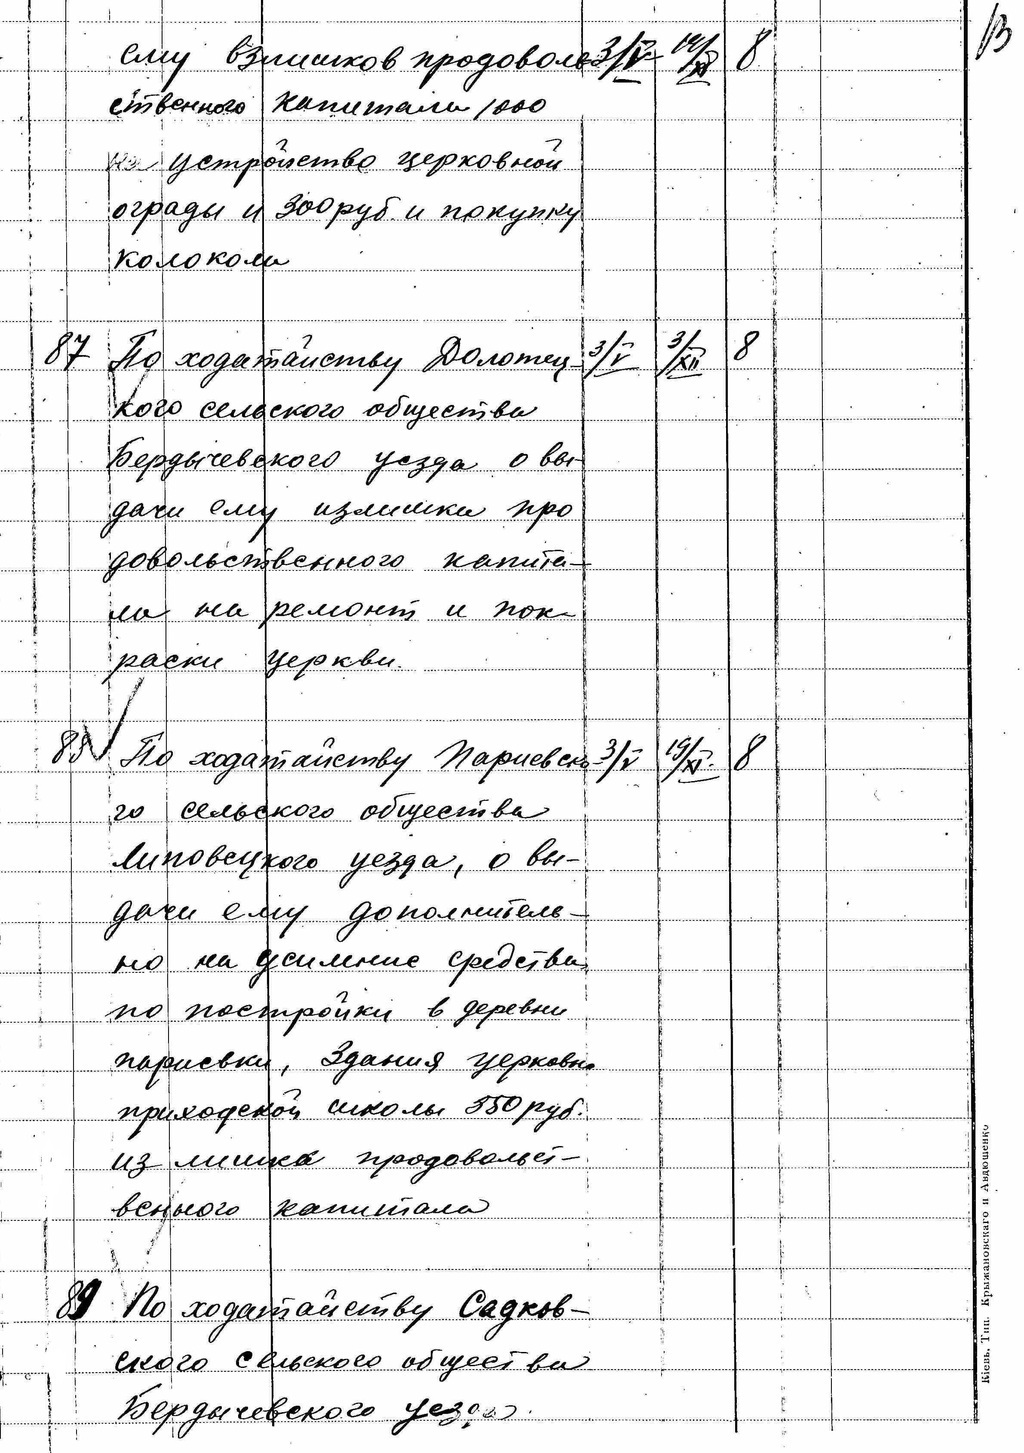 ему взлишков продоволь- 3/V 19/XI 8
ственного капитала 1000
на устройство церковной
ограды и 300 руб. и покупку
колокола
87 По ходатайству Долотец- 3/V 3/XII 8
кого сельского общества
Бердычевского уезда о вы-
дачи ему излишка про
довольственного капита-
ла на ремонт и пок-
раски церкви.
88 По ходатайству Париевско- 3/V 19/XI. 8
го сельского общества
Липовецкого уезда, о вы-
дачи ему дополнитель-
но на усиление средства
по постройки в деревни
париевки, Здания церковно
приходской школы 350 руб.
из лишка продовольст-
венного капитала
89 По ходатайству Садков-
ского сельского общества
Бердычевского уезда.
Кіевъ. Тип. Крыжановскаго и Авдюшенко